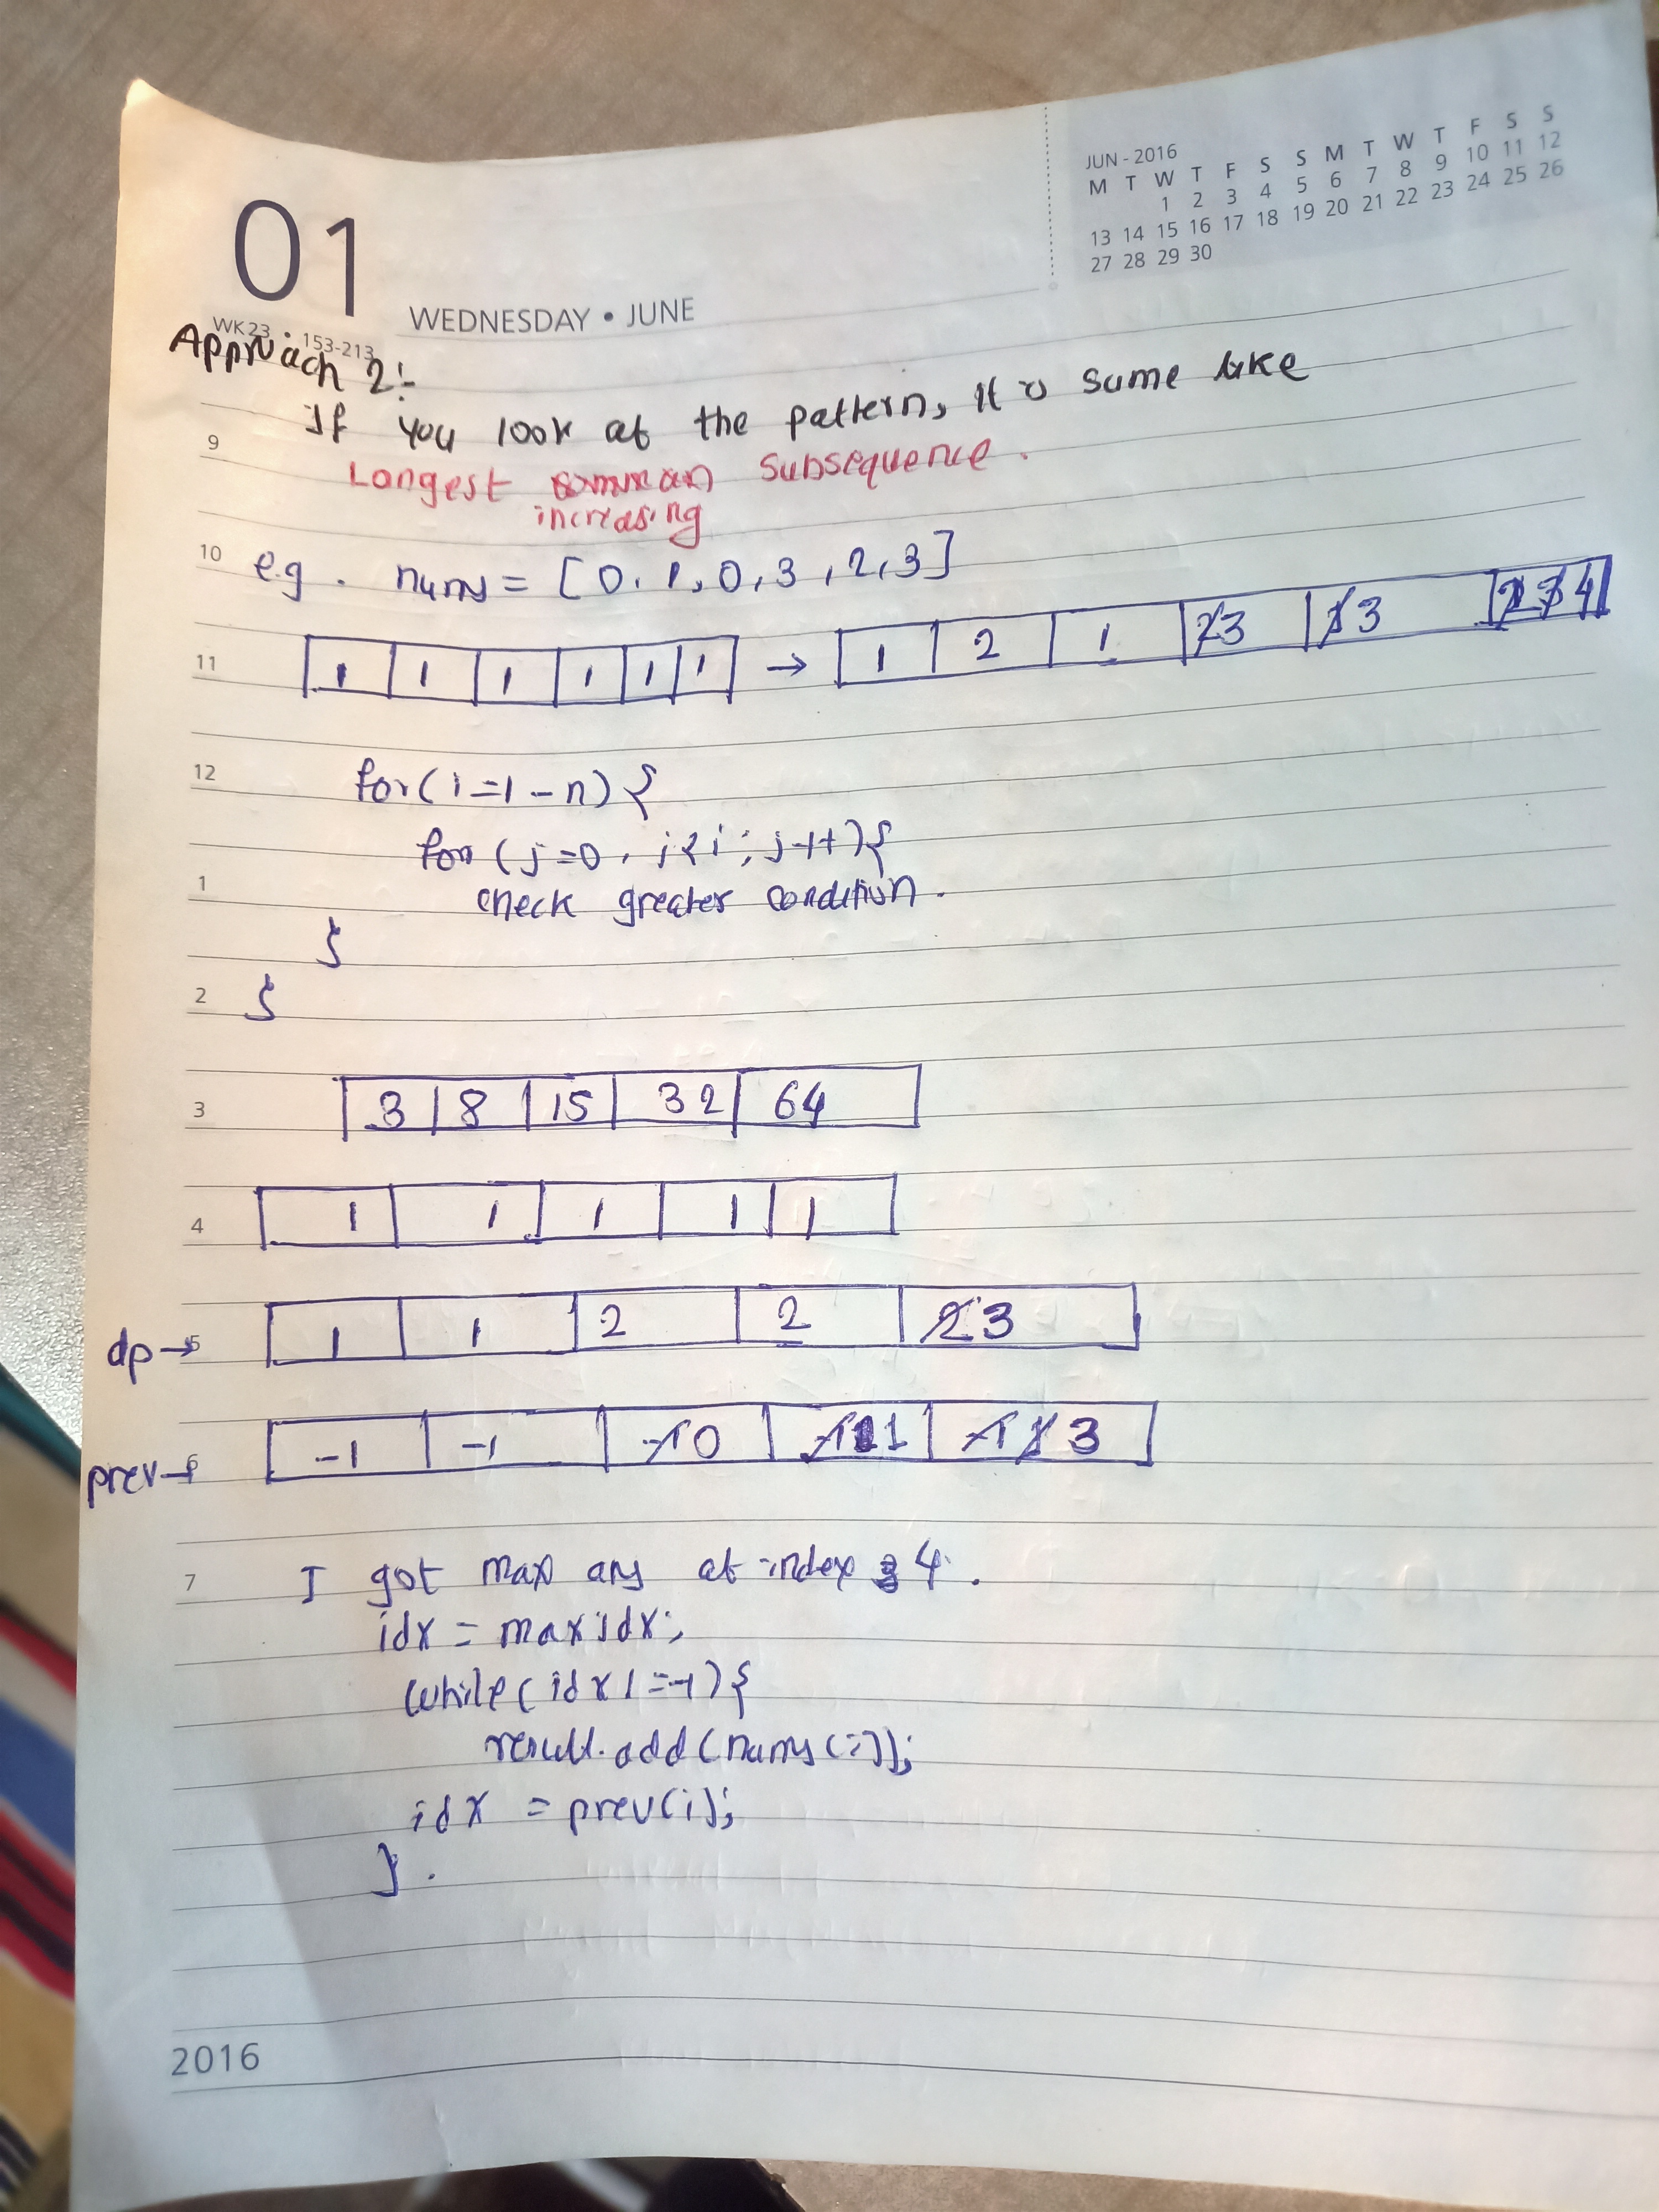 JUN - 2016
M T W T F S S M T W T F S S
1 2 3 4 5 6 7 8 9 10 11 12
13 14 15 16 17 18 19 20 21 22 23 24 25 26
27 28 29 30
01
WEDNESDAY • JUNE
WK23 • 153-213
Approach 2:-
If you look at the pattern, it is same like
9
Longest common subsequence.
increasing
10 e.g. nums = [0, 1, 0, 3, 2, 3]
11 1 1 1 1 1 1 → 1 2 1 2 3 1 3 2 3 4
12 for(i=1-n){
for(j=0, j<i; j++){
1 check greater condition.
}
2 }
3 3 8 15 32 64
4 1 1 1 1 1
dp → 5 1 1 2 2 2 3
prev → 6 -1 -1 -1 0 -1 1 -1 1 3
7 I got max ans at index 3 4.
idx = maxidx;
while(idx!=-1){
result.add(nums(i));
idx = prev(i);
}.
2016